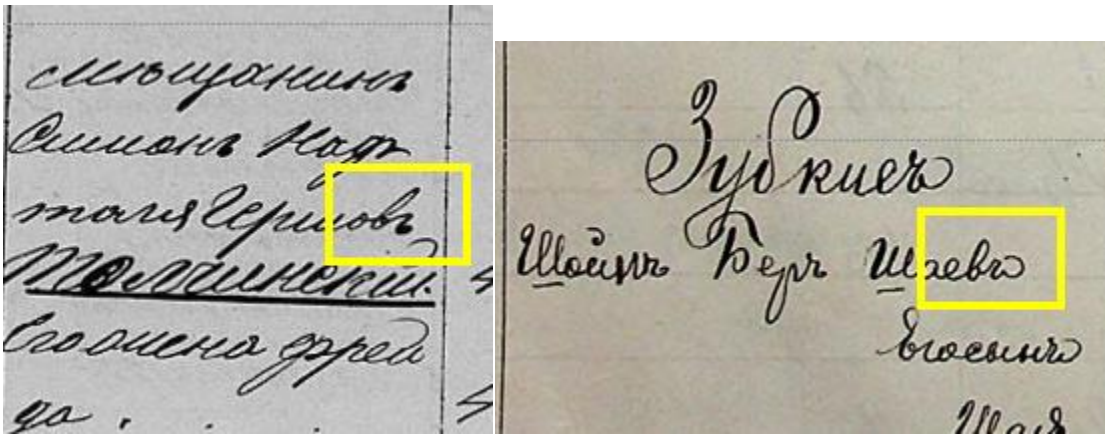 мѣщанинъ
Симонъ Наф
талія Гершовъ
Толчинскій.
Его жена Фрей
да.
Зубкисъ
Шоимъ Беръ Шаевъ
Его сынъ
Шая